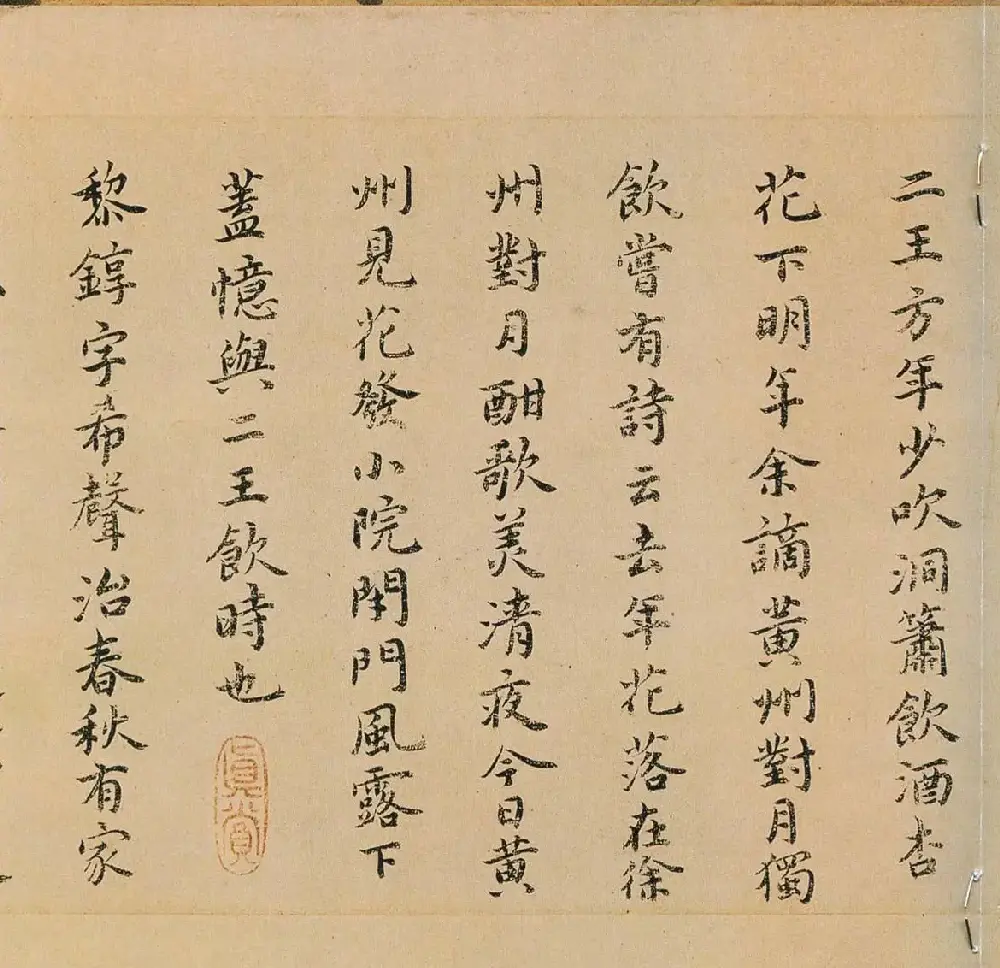 二王方年少吹洞簫飲酒杏
花下明年余謫黃州對月獨
飲嘗有詩云去年花落在徐
州對月酣歌美清夜今日黃
州見花發小院閑門風露下
蓋憶與二王飲時也
真賞
黎錞字希聲治春秋有家